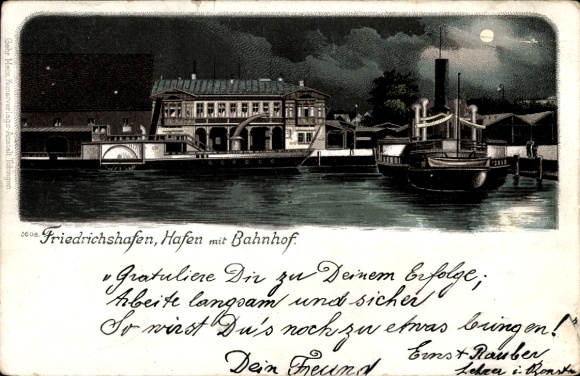 Gebr. Metz, Kunstverlags-Anstalt, Tübingen.
5608. Friedrichshafen, Hafen mit Bahnhof.
"Gratuliere Dir zu Deinem Erfolge;
Arbeite langsam und sicher
So wirst Du's noch zu etwas bringen!
Dein Freund
Ernst Rauber
Lehrer i.